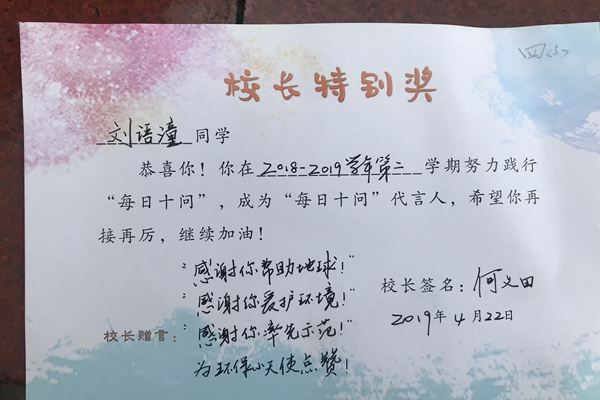 四(5)
校长特别奖
刘语潼 同学
恭喜你！你在2018-2019学年第二学期努力践行
“每日十问”，成为“每日十问”代言人，希望你再
接再厉，继续加油！
“感谢你帮助地球！”
“感谢你爱护环境！”
校长签名：何义田
校长赠言：“感谢你率先示范！”
2019年4月22日
为环保小天使点赞！